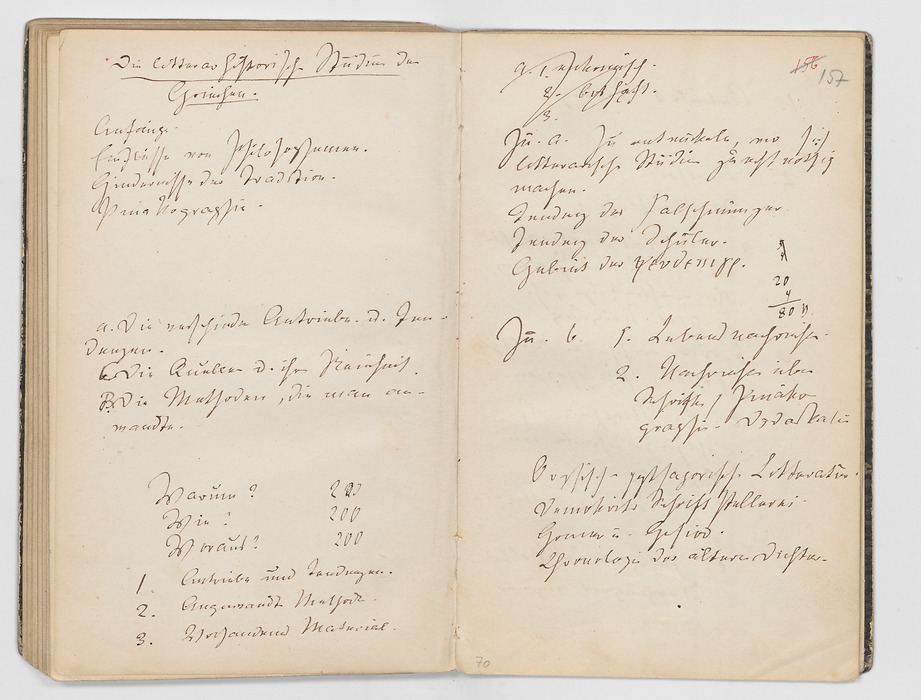 Die litterarhistorische Studien der
Griechen.
Anfänge.
Einflüsse von Philosophemen.
Hindernisse der Tradition.
Pinakographie.
a. Die verschiedn Antriebe u. Ten-
denzen.
b. Die Quellen u. ihre Reinheit.
Die Methoden, die man an-
wandte.
Warum? 200
Wie? 200
Woraus? 200
1. Antriebe und Tendenzen.
2. Angewandte Methode.
3. Vorhandene Material.
156 157
a. 1.
2.
3.
Zu. a. Zu entwickeln, wo sich
litterarische Studien zuerst nöthig
machen.
Tendenz der Falschmünzer.
Tendenz der Schüler.
Gebiet der ψευδεπιγρ.
20
4
80
Zu. b 1. Lebensnachrichten.
2. Nachrichten über
Schriften, Pinako
graphie. Didaskalie
Orphisch-pythagorische Litteratur.
Demokrits Schriftstellerei.
Homer u. Hesiod.
Chronologie der älteren Dichter.
70